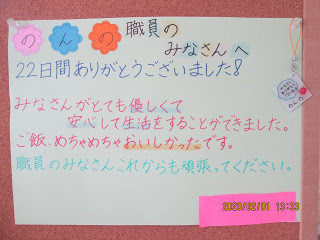 のんの 職員の
みなさんへ
22日間ありがとうございました!
みなさんがとても優しくて
安心して生活をすることができました。
ご飯、めちゃめちゃおいしかったです。
職員のみなさんこれからも頑張ってください。
2020/02/01 13:33